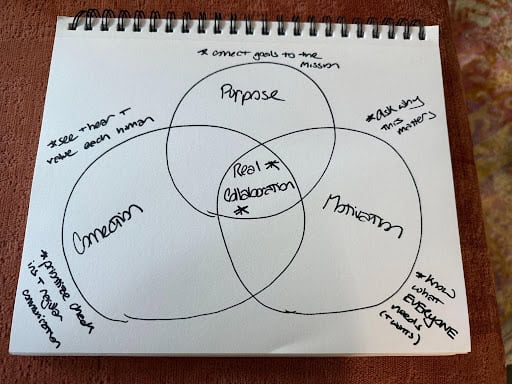 * connect goals to the
mission
Purpose
* see + hear +
value each human
* ask why
this
matters
Real *
Collaboration
*
Connection
Motivation
* prioritize check
ins + regular
communication
* know
what
EVERYONE
needs
(+ wants)